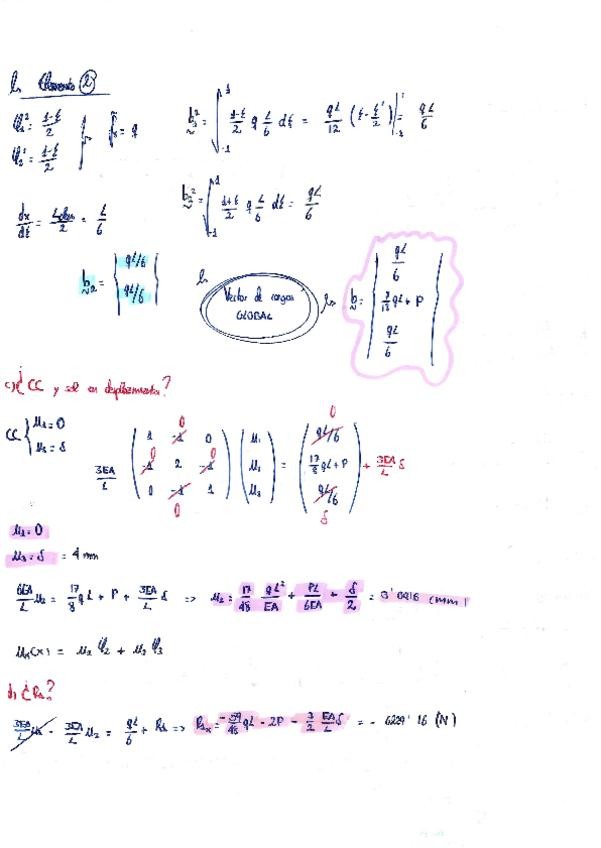 ↳ Elemento ②
φ₁² = (1-ξ)/2
φ₂² = (1-ξ)/2
f = q
b₁² = ∫₋₁¹ (1-ξ)/2 q L/6 dξ = qL/12 (ξ - ξ²/2)|₋₁¹ = qL/6
dx/dξ = /2 = L/6
b₂² = ∫₋₁¹ (1+ξ)/2 q L/6 dξ = qL/6
b₂ = { qL/6
qL/6 }
↳ Vector de cargas GLOBAL
↳ b = { qL/6
qL + P
qL/6 }
c) ¿ CC y sol en desplazamientos?
CC { u₁ = 0
u₃ = δ
3EA/L ( 1 -1 0
-1 2 -1
0 -1 1 ) ( u₁
u₂
u₃ ) = ( qL/6
17/8 qL + P
qL/6 ) + 3EA/L δ
0 0 0 0 0 0 δ
u₁ = 0
u₃ = δ = 4 mm
6EA/L u₂ = 17/8 qL + P + 3EA/L δ => u₂ = 17/48 qL²/EA + PL/6EA + δ/2 = (mm)
u(x) = u₂ φ₂ + u₃ φ₃
d) ¿R₁?
3EA/L u₁ - 3EA/L u₂ = qL/6 + R₁ => R₁ₓ = -59/48 qL - 2P - 3/2 EA/L δ = - 6229'16 (N)